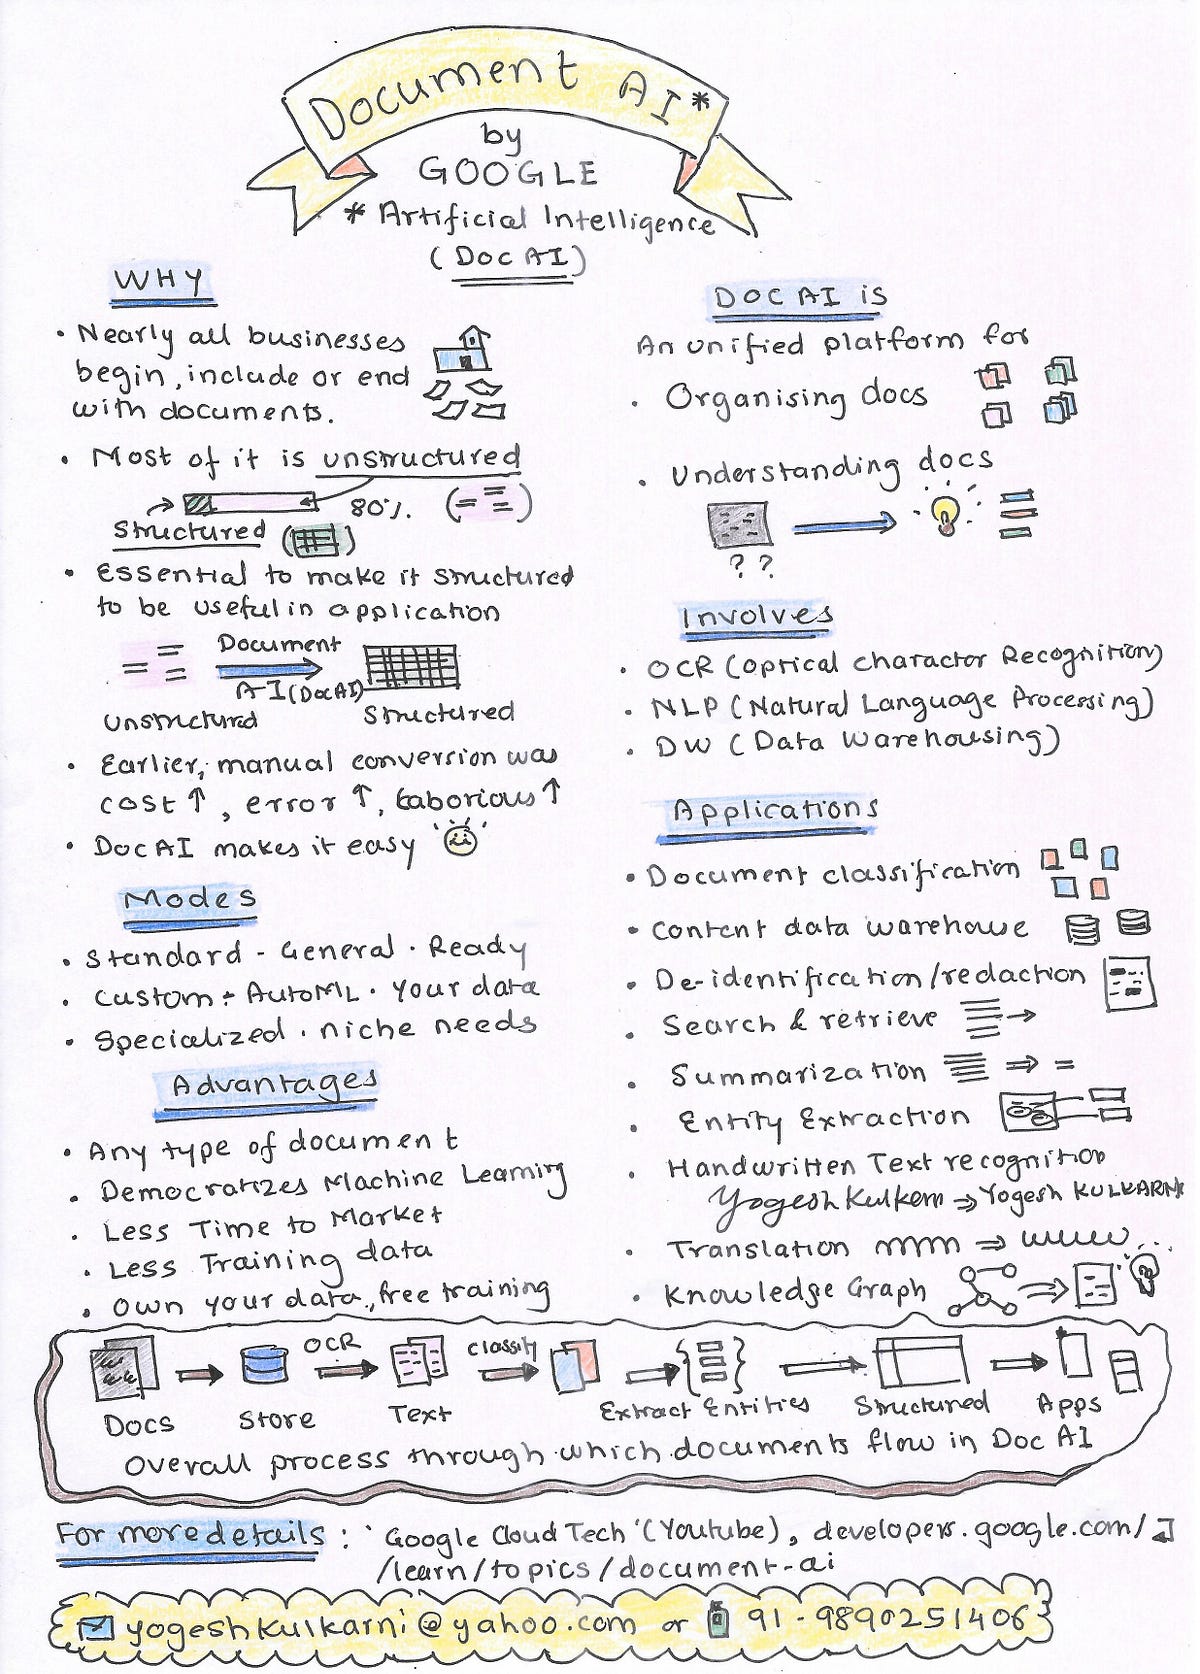 Document AI*
by
GOOGLE
* Artificial Intelligence
(DOC AI)
WHY
• Nearly all businesses
begin, include or end
with documents.
• Most of it is unstructured
80%.
Structured
• Essential to make it structured
to be useful in application
Document
AI (DocAI)
Unstructured
Structured
• Earlier, manual conversion was
cost ↑, error ↑, Laborious ↑
• DocAI makes it easy
Modes
• Standard - General . Ready
• Custom - AutoML . your data
• Specialized . niche needs
Advantages
• Any type of document
• Democratizes Machine Learning
• Less Time to Market
• Less Training data
• Own your data, free training
DOC AI is
An unified platform for
• Organising docs
• Understanding docs
? ?
Involves
• OCR (Optical Charactor Recognition)
• NLP (Natural Language Processing)
• DW (Data Warehousing)
Applications
• Document classification
• Content data warehouse
• De-identification/redaction
• Search & retrieve
• Summarization
• Entity Extraction
• Handwritten Text recognition
Yogesh Kulkarni ⇒ Yogesh KULKARNI
• Translation
• Knowledge Graph
OCR
Classify
Docs
Store
Text
Extract Entities
Structured
Apps
Overall process through which documents flow in Doc AI
For more details : 'Google Cloud Tech' (Youtube), developers.google.com/
/learn/topics/document-ai
yogeshkulkarni@yahoo.com or 91-9890251406